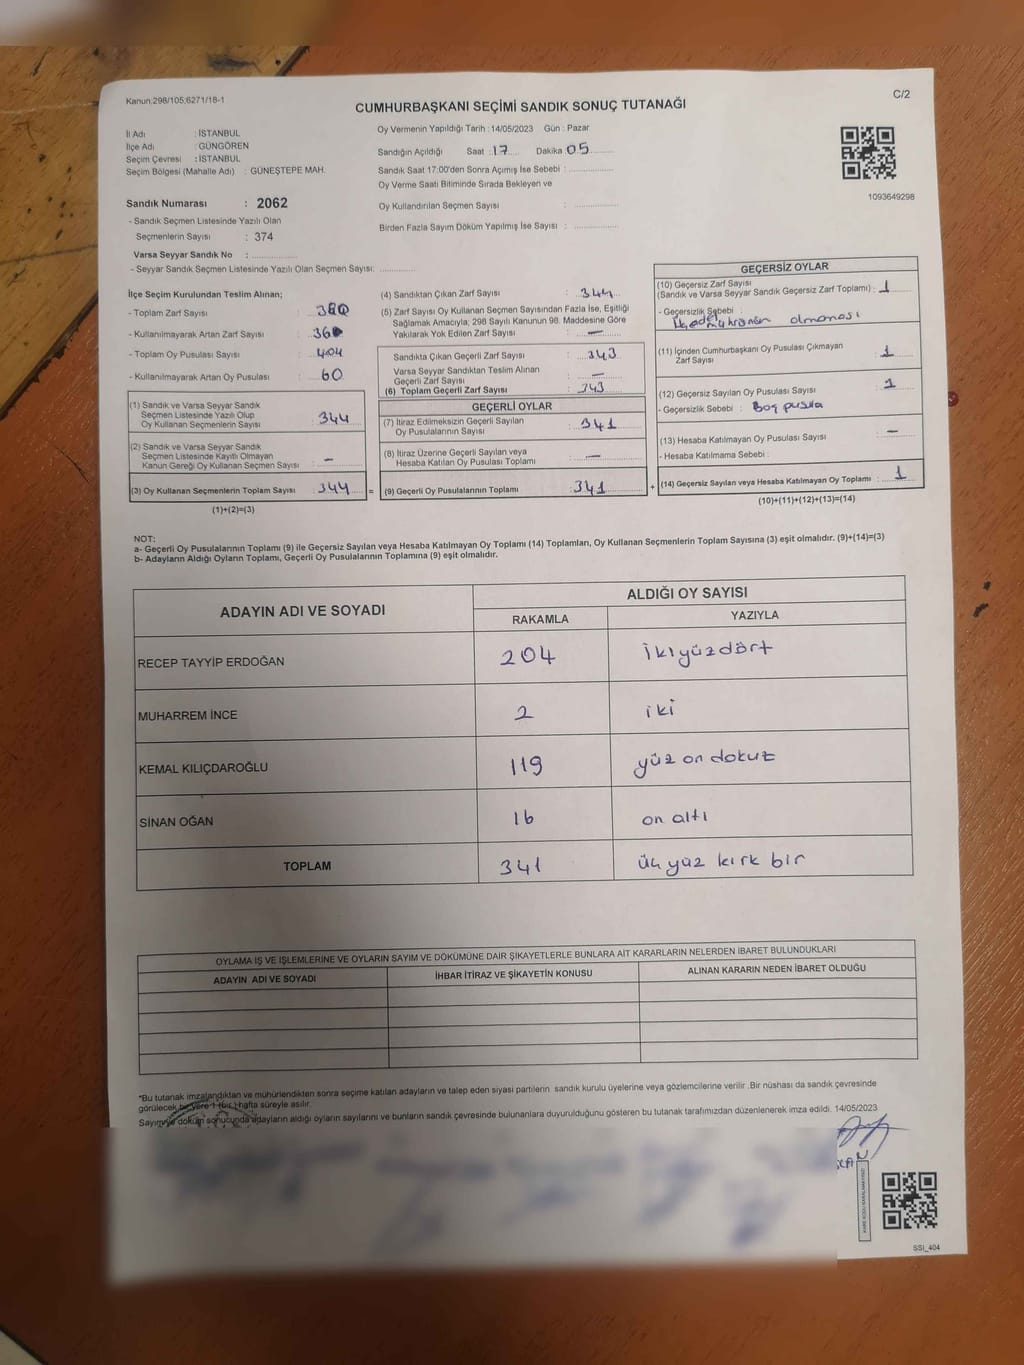 Kanun:298/105;6271/18-1
C/2
CUMHURBAŞKANI SEÇİMİ SANDIK SONUÇ TUTANAĞI
İl Adı : İSTANBUL
İlçe Adı : GÜNGÖREN
Seçim Çevresi : İSTANBUL
Seçim Bölgesi (Mahalle Adı) : GÜNEŞTEPE MAH.
Oy Vermenin Yapıldığı Tarih : 14/05/2023 Gün : Pazar
Sandığın Açıldığı Saat : 17 Dakika : 05
Sandık Saat 17:00'den Sonra Açımış İse Sebebi :
Oy Verme Saati Bitiminde Sırada Bekleyen ve
Oy Kullandırılan Seçmen Sayısı :
Birden Fazla Sayım Döküm Yapılmış İse Sayısı :
1093649298
Sandık Numarası : 2062
- Sandık Seçmen Listesinde Yazılı Olan
Seçmenlerin Sayısı : 374
Varsa Seyyar Sandık No :
- Seyyar Sandık Seçmen Listesinde Yazılı Olan Seçmen Sayısı:
İlçe Seçim Kurulundan Teslim Alınan;
- Toplam Zarf Sayısı :
- Kullanılmayarak Artan Zarf Sayısı :
- Toplam Oy Pusulası Sayısı : 404
- Kullanılmayarak Artan Oy Pusulası : 60
(1) Sandık ve Varsa Seyyar Sandık
Seçmen Listesinde Yazılı Olup
Oy Kullanan Seçmenlerin Sayısı : 344
(2) Sandık ve Varsa Seyyar Sandık
Seçmen Listesinde Kayıtlı Olmayan
Kanun Gereği Oy Kullanan Seçmen Sayısı : -
(3) Oy Kullanan Seçmenlerin Toplam Sayısı : 344
(1)+(2)=(3)
(4) Sandıktan Çıkan Zarf Sayısı : 344
(5) Zarf Sayısı Oy Kullanan Seçmen Sayısından Fazla İse, Eşitliği
Sağlamak Amacıyla; 298 Sayılı Kanunun 98. Maddesine Göre
Yakılarak Yok Edilen Zarf Sayısı : -
Sandıkta Çıkan Geçerli Zarf Sayısı : 343
Varsa Seyyar Sandıktan Teslim Alınan
Geçerli Zarf Sayısı : -
(6) Toplam Geçerli Zarf Sayısı : 343
GEÇERLİ OYLAR
(7) İtiraz Edilmeksizin Geçerli Sayılan
Oy Pusulalarının Sayısı : 341
(8) İtiraz Üzerine Geçerli Sayılan veya
Hesaba Katılan Oy Pusulası Toplamı : -
= (9) Geçerli Oy Pusulalarının Toplamı : 341
GEÇERSİZ OYLAR
(10) Geçersiz Zarf Sayısı
(Sandık ve Varsa Seyyar Sandık Geçersiz Zarf Toplamı) : 1
- Geçersizlik Sebebi :
olmaması
(11) İçinden Cumhurbaşkanı Oy Pusulası Çıkmayan
Zarf Sayısı : 1
(12) Geçersiz Sayılan Oy Pusulası Sayısı : 1
- Geçersizlik Sebebi : Boş pusla
(13) Hesaba Katılmayan Oy Pusulası Sayısı : -
- Hesaba Katılmama Sebebi :
+ (14) Geçersiz Sayılan veya Hesaba Katılmayan Oy Toplamı : 1
(10)+(11)+(12)+(13)=(14)
NOT:
a- Geçerli Oy Pusulalarının Toplamı (9) ile Geçersiz Sayılan veya Hesaba Katılmayan Oy Toplamı (14) Toplamları, Oy Kullanan Seçmenlerin Toplam Sayısına (3) eşit olmalıdır. (9)+(14)=(3)
b- Adayların Aldığı Oyların Toplamı, Geçerli Oy Pusulalarının Toplamına (9) eşit olmalıdır.
ADAYIN ADI VE SOYADI
ALDIĞI OY SAYISI
RAKAMLA YAZIYLA
RECEP TAYYİP ERDOĞAN 204 ikiyüzdört
MUHARREM İNCE 2 iki
KEMAL KILIÇDAROĞLU 119 yüz on dokuz
SİNAN OĞAN 16 on altı
TOPLAM 341 üç yüz kırk bir
OYLAMA İŞ VE İŞLEMLERİNE VE OYLARIN SAYIM VE DÖKÜMÜNE DAİR ŞİKAYETLERLE BUNLARA AİT KARARLARIN NELERDEN İBARET BULUNDUKLARI
ADAYIN ADI VE SOYADI İHBAR İTİRAZ VE ŞİKAYETİN KONUSU ALINAN KARARIN NEDEN İBARET OLDUĞU
*Bu tutanak imzalandıktan ve mühürlendikten sonra seçime katılan adayların ve talep eden siyasi partilerin sandık kurulu üyelerine veya gözlemcilerine verilir .Bir nüshası da sandık çevresinde
görülecek bir yere 1 (bir) hafta süreyle asılır.
Sayım ve döküm sonucunda adayların aldığı oyların sayılarını ve bunların sandık çevresinde bulunanlara duyurulduğunu gösteren bu tutanak tarafımızdan düzenlenerek imza edildi. 14/05/2023
SSİ_404